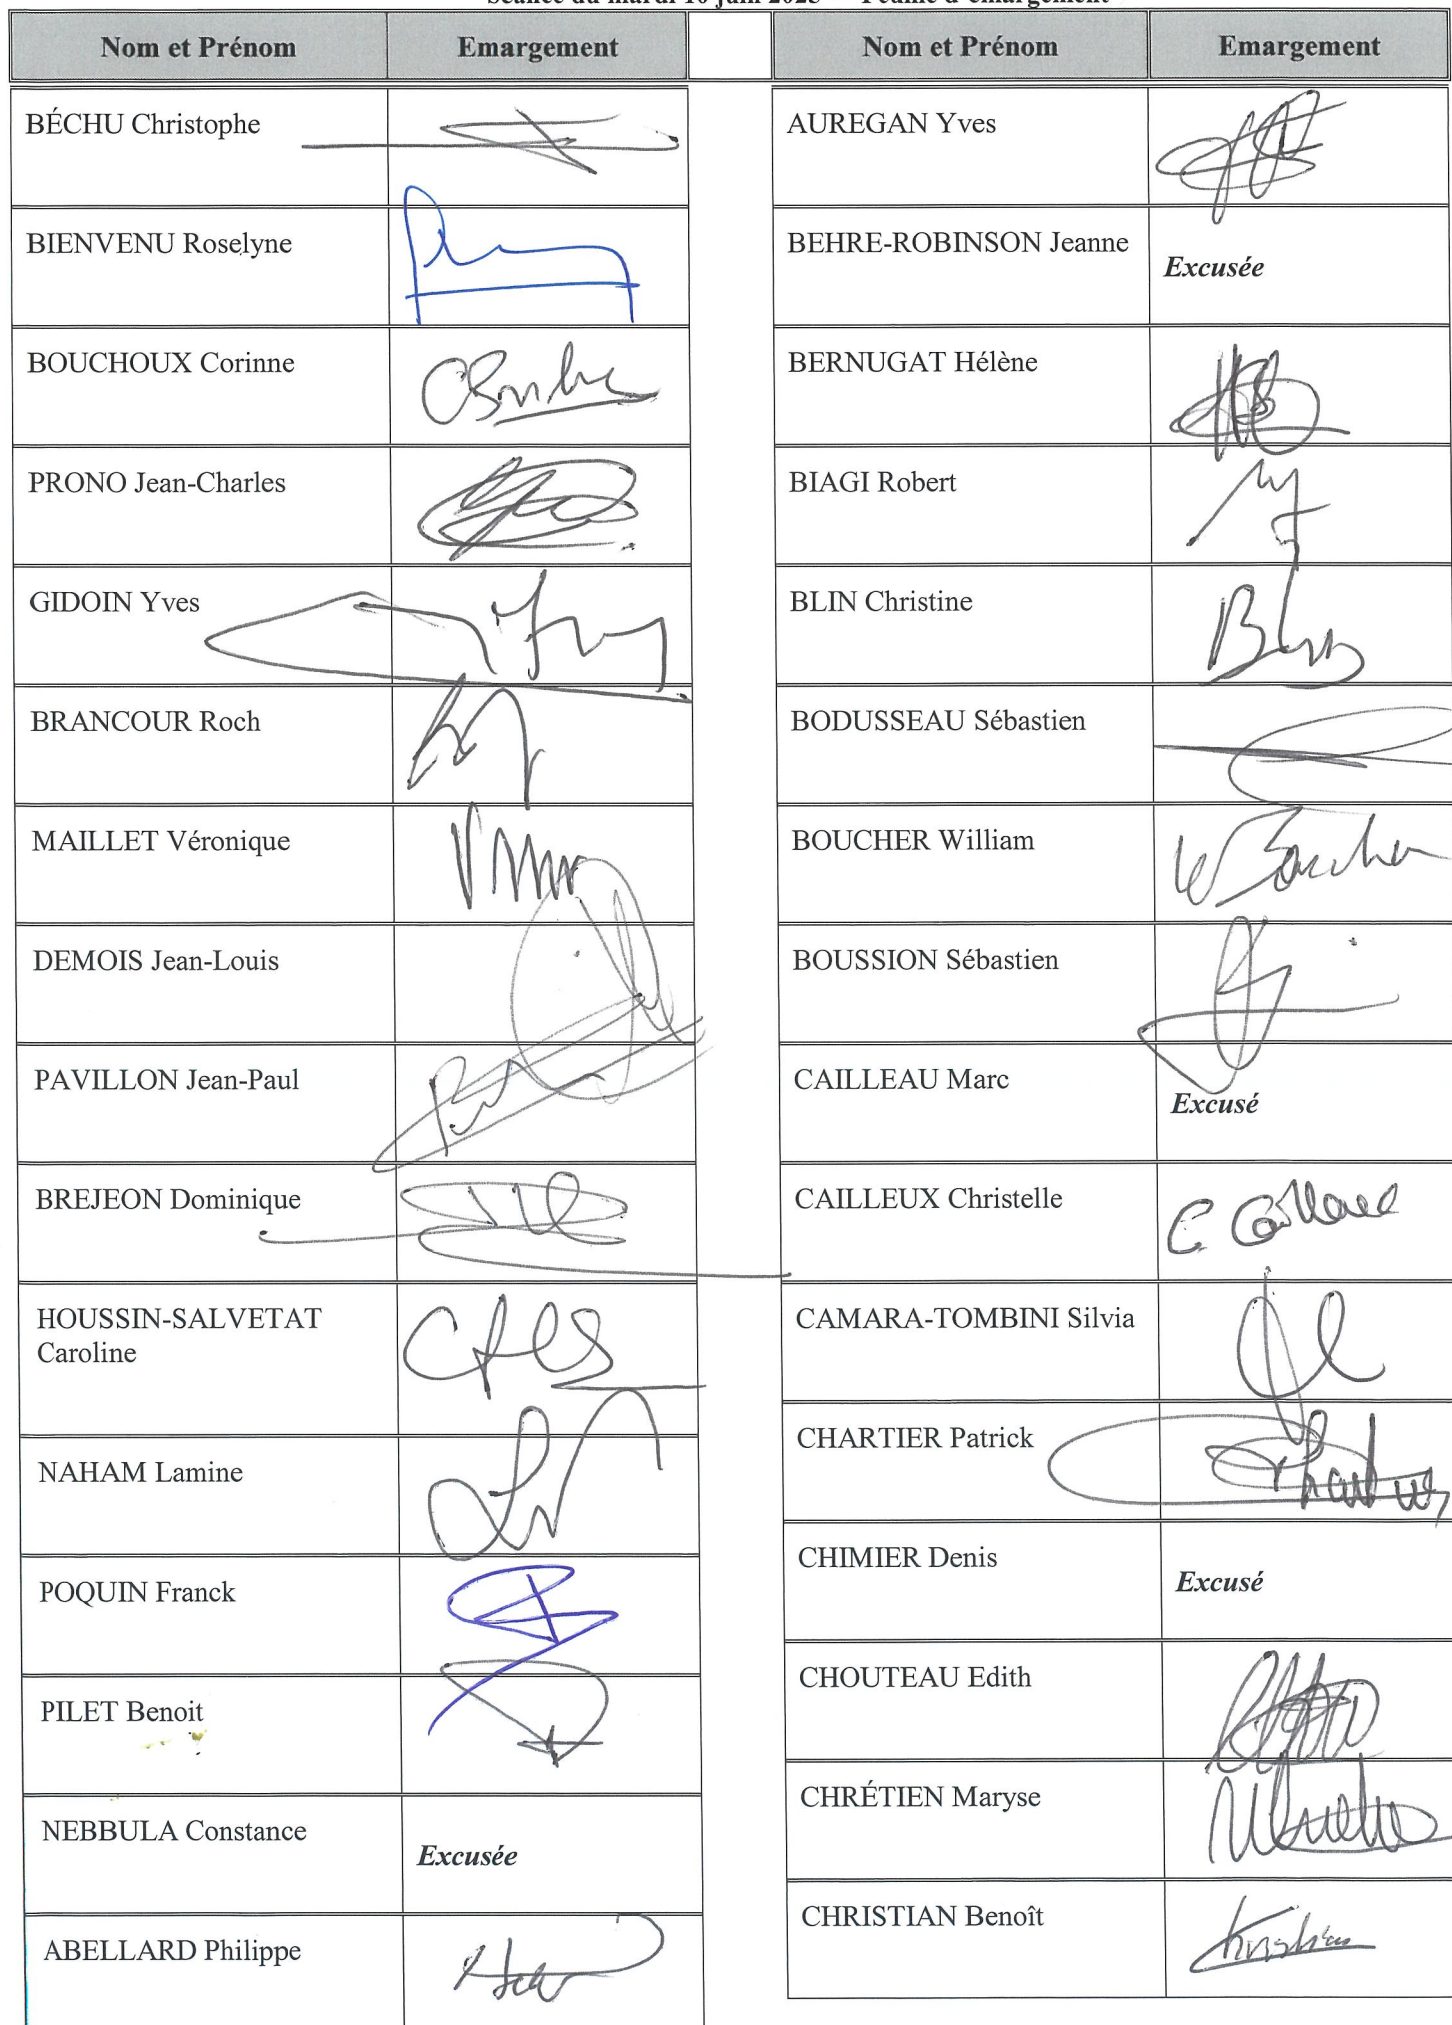 Séance du mardi 10 juin 2025 Feuille d'émargement
Nom et Prénom Emargement
BÉCHU Christophe
BIENVENU Roselyne
BOUCHOUX Corinne
PRONO Jean-Charles
GIDOIN Yves
BRANCOUR Roch
MAILLET Véronique
DEMOIS Jean-Louis
PAVILLON Jean-Paul
BREJEON Dominique
HOUSSIN-SALVETAT
Caroline
NAHAM Lamine
POQUIN Franck
PILET Benoit
NEBBULA Constance Excusée
ABELLARD Philippe
Nom et Prénom Emargement
AUREGAN Yves
BEHRE-ROBINSON Jeanne Excusée
BERNUGAT Hélène
BIAGI Robert
BLIN Christine
BODUSSEAU Sébastien
BOUCHER William W Boucher
BOUSSION Sébastien
CAILLEAU Marc Excusé
CAILLEUX Christelle
CAMARA-TOMBINI Silvia
CHARTIER Patrick
CHIMIER Denis Excusé
CHOUTEAU Edith
CHRÉTIEN Maryse
CHRISTIAN Benoît